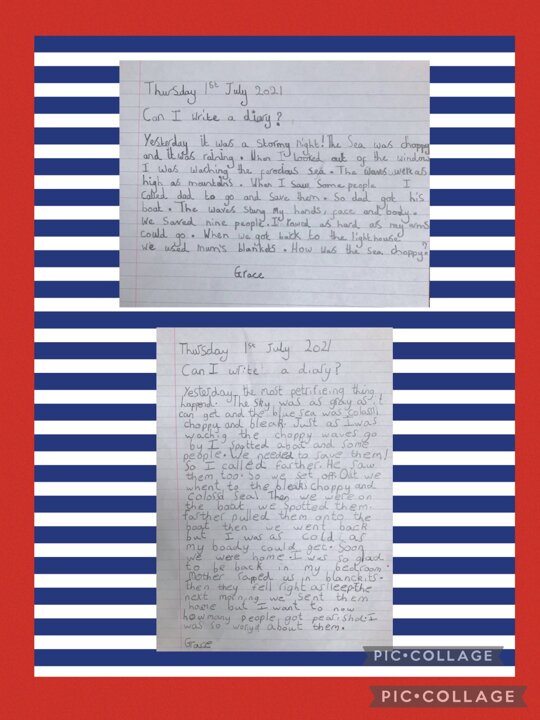 Thursday 1st July 2021
Can I write a diary?
Yesterday it was a stormy night! The Sea was choppy
and it was raining. When I looked out of the window
I was waching the ferocious sea. The waves were as
high as mountains. When I saw some people I
called dad to go and save them. So dad got his
boat. The waves stung my hands, face and body.
We saved nine people. I rowd as hard as my arms
could go. When we got back to the lighthouse
we used mum's blankets. How was the sea choppy?
Grace
Thursday 1st July 2021
Can I write a diary?
Yesterday, the most petrifieing thing
happend. The sky was as gray as it
can get and the blue sea was colossi
choppy and bleak. Just as I was
waching the choppy waves go
by I spotted a boat and some
people. We needed to save them!
So I called farther. He saw
them too. So we set off. Out we
whent to the bleak choppy and
colossa sea. Then we were on
the boat, we spotted them.
farther pulled them onto the
boat then we went back
but I was as cold as
my boady could get. Soon
we were home. I was so glad
to be back in my bedroom.
Mother rapped us in blanckits.
Then they fell right asleep the
next morning we sent them
home but I want to now
how many people got pearishd. I
was so woryd about them.
Grace
PIC•COLLAGE
PIC•COLLAGE